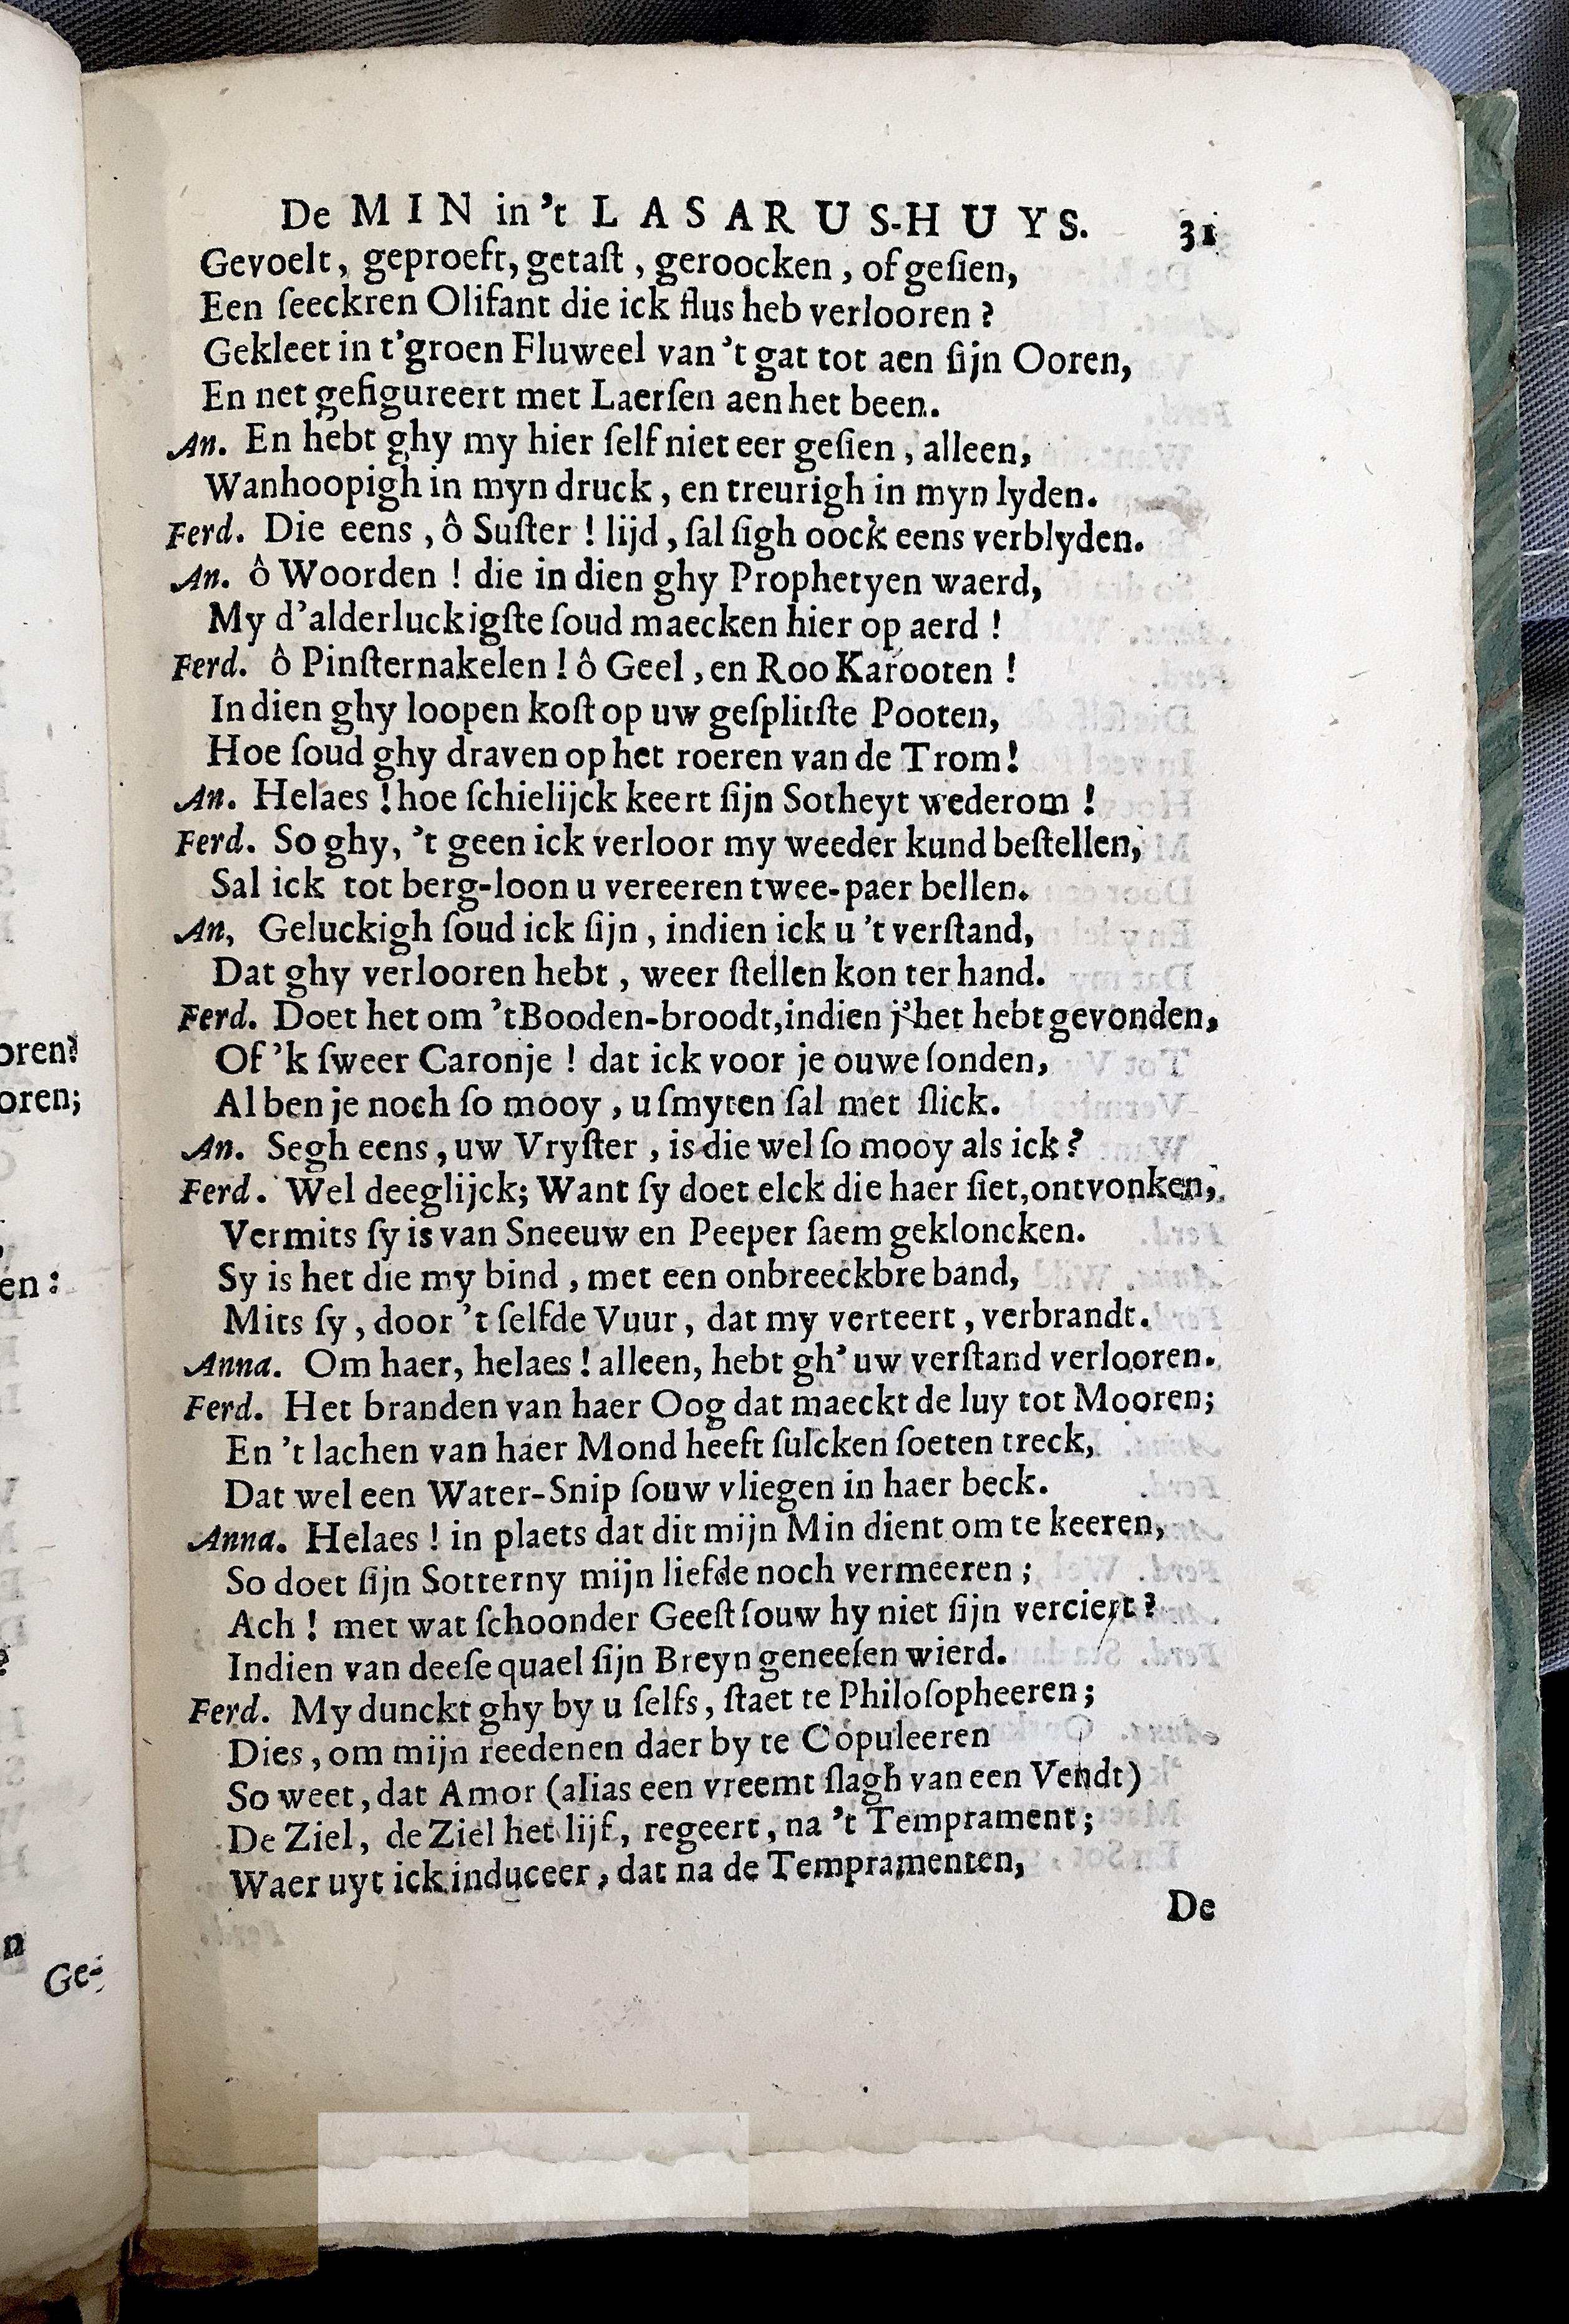 De MIN in 't LASARUS-HUYS. 31
Gevoelt, geproeft, getaſt, geroocken, of geſien,
Een ſeeckren Olifant die ick flus heb verlooren?
Gekleet in t'groen Fluweel van 't gat tot aen ſijn Ooren,
En net gefigureert met Laerſen aen het been.
An. En hebt ghy my hier ſelf niet eer geſien, alleen,
Wanhoopigh in myn druck, en treurigh in myn lyden.
Ferd. Die eens, ô Suſter! lijd, ſal ſigh oock eens verblyden.
An. ô Woorden! die in dien ghy Prophetyen waerd,
My d'alderluckigſte ſoud maecken hier op aerd!
Ferd. ô Pinſternakelen! ô Geel, en Roo Karooten!
Indien ghy loopen koſt op uw geſplitſte Pooten,
Hoe ſoud ghy draven op het roeren van de Trom!
An. Helaes! hoe ſchielijck keert ſijn Sotheyt wederom!
Ferd. So ghy, 't geen ick verloor my weeder kund beſtellen,
Sal ick tot berg-loon u vereeren twee-paer bellen.
An, Geluckigh ſoud ick ſijn, indien ick u 't verſtand,
Dat ghy verlooren hebt, weer ſtellen kon ter hand.
Ferd. Doet het om 't Booden-broodt, indien j'het hebt gevonden,
Of 'k ſweer Caronje! dat ick voor je ouwe ſonden,
Al ben je noch ſo mooy, u ſmyten ſal met ſlick.
An. Segh eens, uw Vryſter, is die wel ſo mooy als ick?
Ferd. Wel deeglijck; Want ſy doet elck die haer ſiet, ontvonken,
Vermits ſy is van Sneeuw en Peeper ſaem gekloncken.
Sy is het die my bind, met een onbreeckbre band,
Mits ſy, door 't ſelfde Vuur, dat my verteert, verbrandt.
Anna. Om haer, helaes! alleen, hebt gh' uw verſtand verlooren.
Ferd. Het branden van haer Oog dat maeckt de luy tot Mooren;
En 't lachen van haer Mond heeft ſulcken ſoeten treck,
Dat wel een Water-Snip ſouw vliegen in haer beck.
Anna. Helaes! in plaets dat dit mijn Min dient om te keeren,
So doet ſijn Sotterny mijn liefde noch vermeeren;
Ach! met wat ſchoonder Geeſt ſouw hy niet ſijn verciert?
Indien van deeſe quael ſijn Breyn geneeſen wierd.
Ferd. My dunckt ghy by u ſelfs, ſtaet te Philoſopheeren;
Dies, om mijn reedenen daer by te Copuleeren
So weet, dat Amor (alias een vreemt ſlagh van een Vendt)
De Ziel, de Ziel het lijf, regeert, na 't Temprament;
Waer uyt ick induceer, dat na de Tempramenten,
De
oren?
oren;
en:
?
n
Ge-